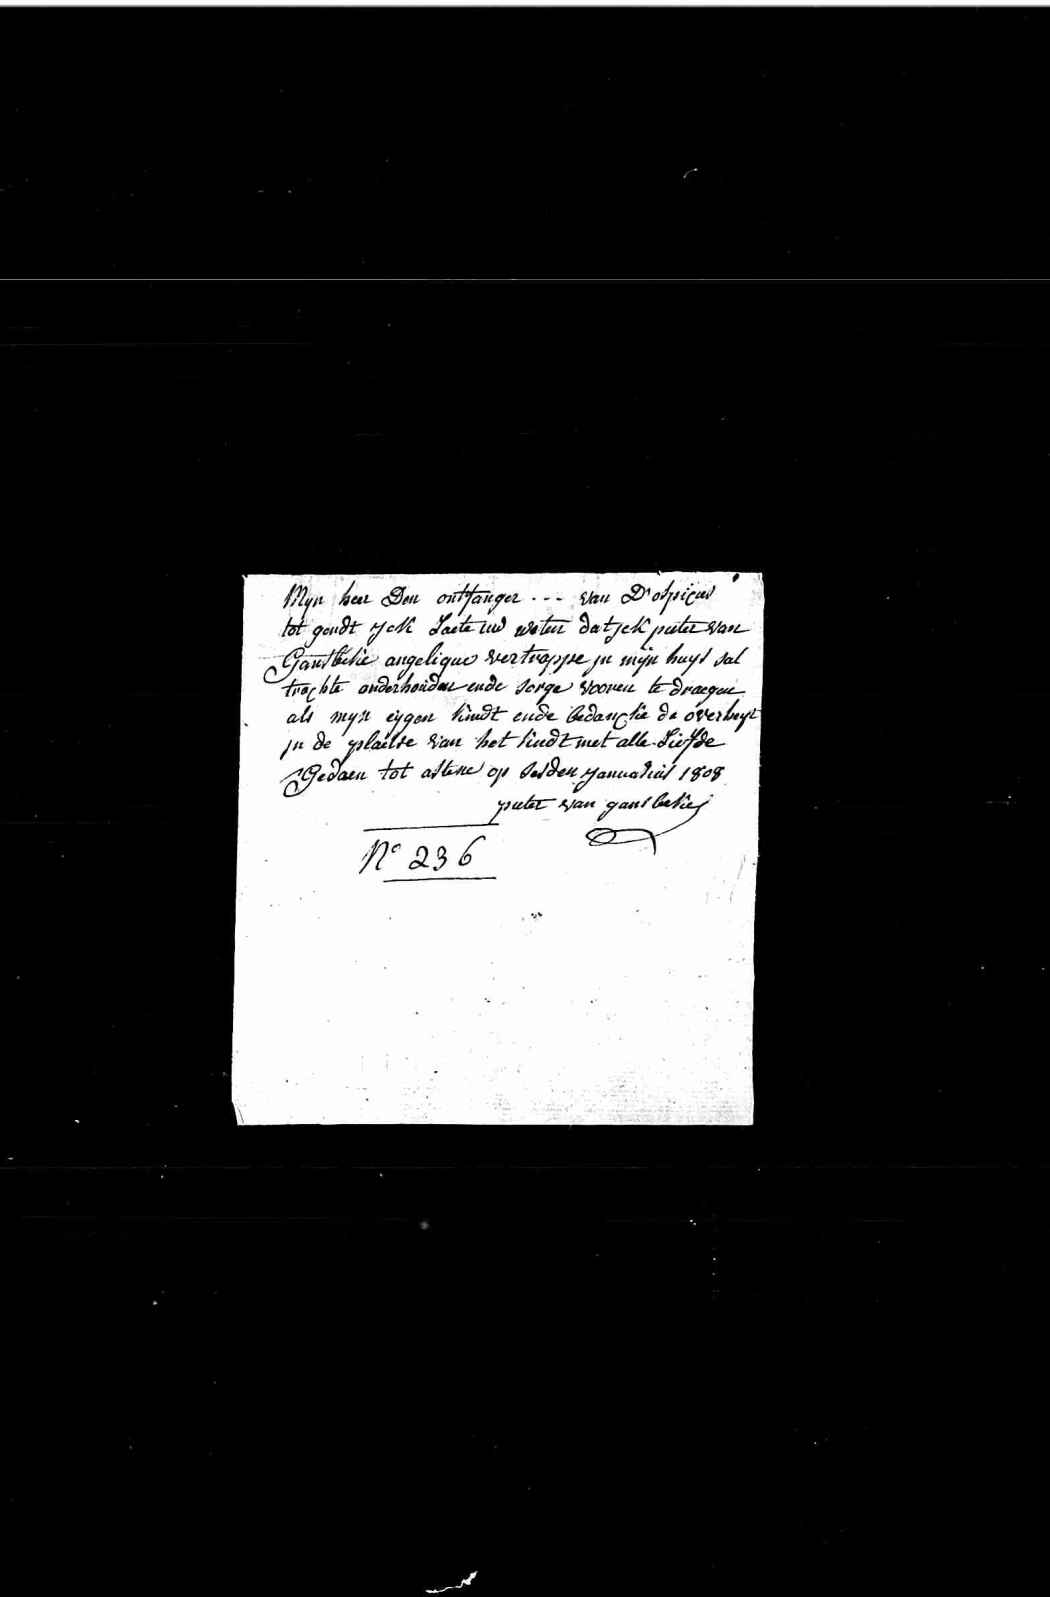 Mijn heer Den ontfanger --- van D'ospicus
tot gendt yck Laete uw weten dat jck pieter van
Gansbeke angelique vertrappe jn mijn huys sal
trachte onderhouden ende sorge vooren te draegen
als myn eygen kindt ende bedancke de overheyt
jn de plaetse van het kindt met alle Liefde
Gedaen tot astene op sesden januarius 1808
pieter van gansbeke
N° 236